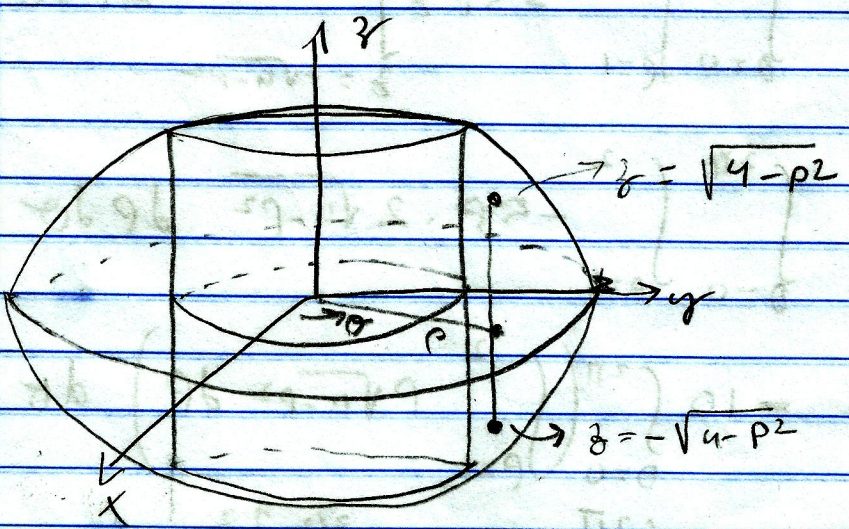 z
z = √4-ρ2
y
θ
ρ
z = -√4-ρ2
x